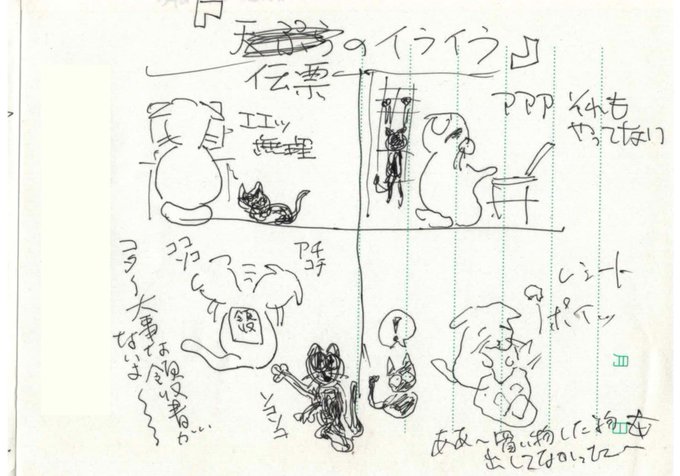 『天ぷらのイライラ』
伝票
エエッ
無理
アアア
それも
やってない
ココ
ソコ
アチ
コチ
大事な領収書が
ないよ〜〜
!
レシート
ポイッ
ああ〜買い物した物
出してなかった〜